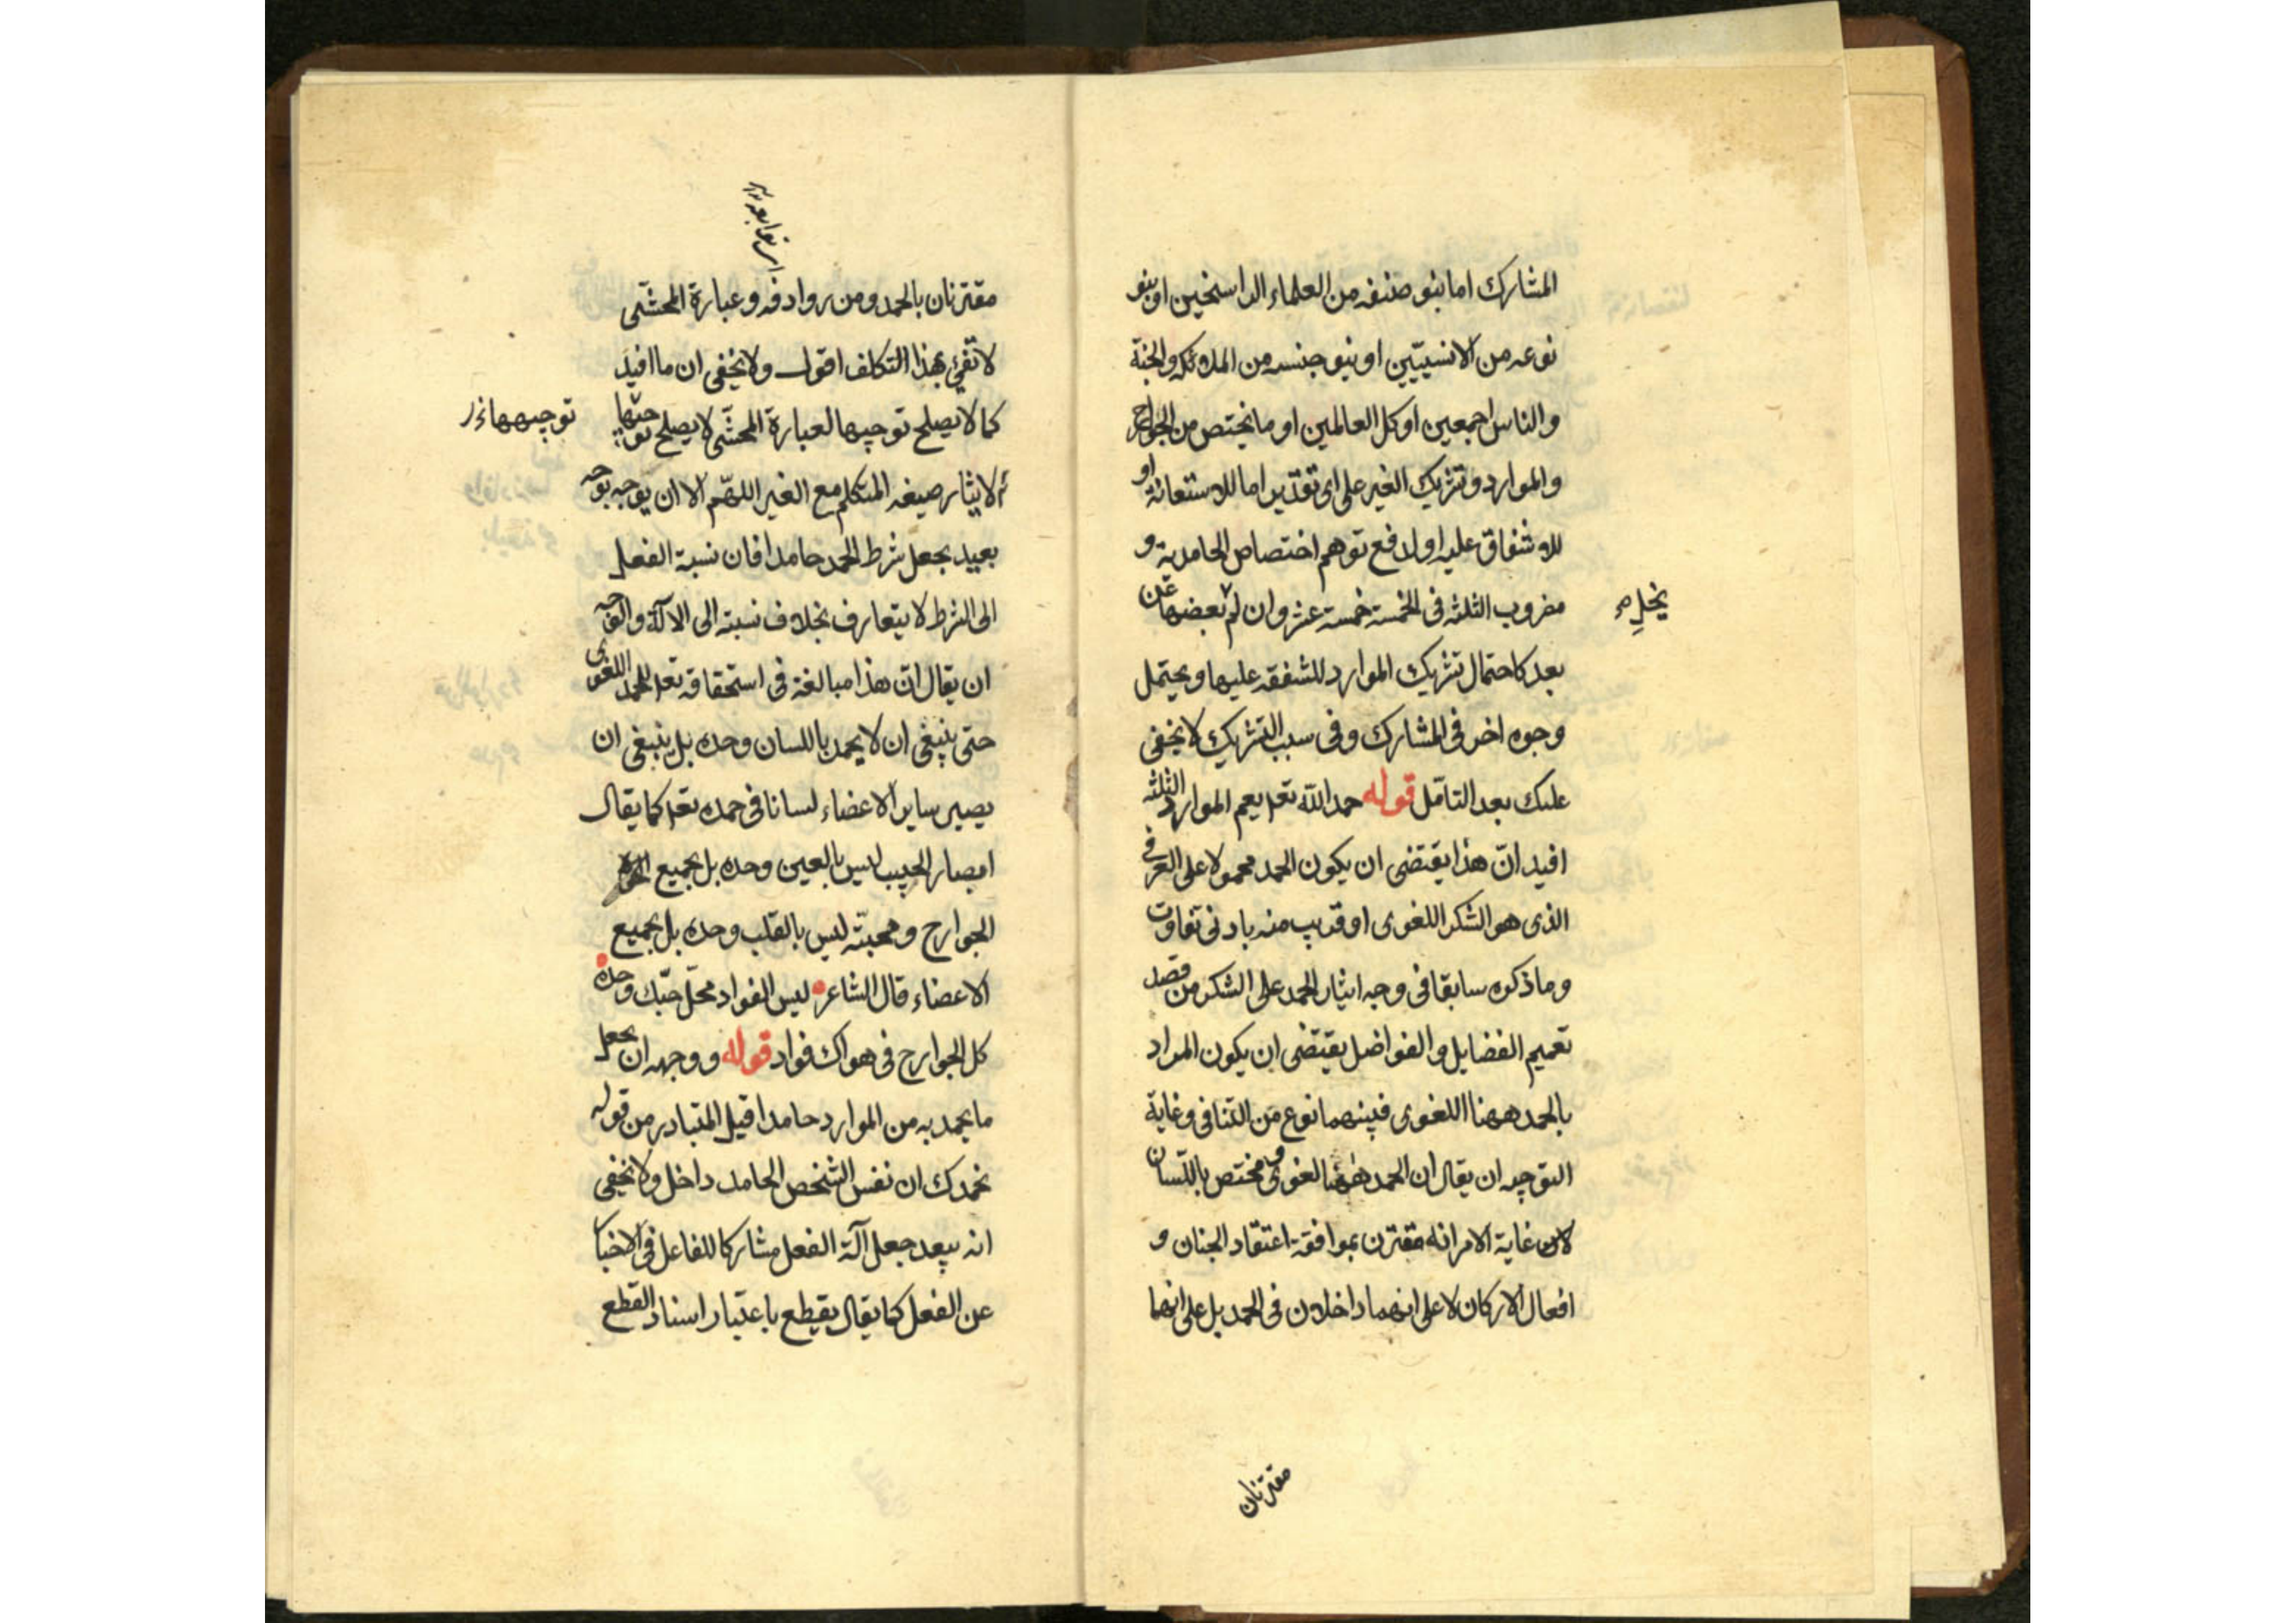 المشارك اما بنو صنفه من العلماء الراسخين او بنو
نوعه من الانسيّين او بنو جنسه من الملائكه والجنة
والناس اجمعين او كل العالمين او ما يختص من الجوارح
والموارد وتشريك الغير على اى تقدير اما للاستعانة او
للاشفاق عليه او لدفع توهم اختصاص الحامدية و
مضروب الثلثه فى الخمسة خمسة عشر وان لم بعضها عن
يخل م
بعد كاحتمال تشريك الموارد للشفقه عليها ويحتمل
وجوه اخر فى المشارك وفى سبب التشريك لا يخفى
عليك بعد التامّل قوله حمد اللّه تعه يعم الموارد الثلثه
افيد انّ هذا يقتضى ان يكون الحمد محمولا على العرفى
الذى هو الشكر اللغوى او قريب منه بادنى تفاوت
وما ذكره سابقا فى وجه ايثار الحمد على الشكر من قصد
تعميم الفضايل والفواضل يقتضى ان يكون المراد
بالحمد ههنا اللغوى فبينهما نوع من التنافى وغاية
التوجيه ان يقال ان الحمد ههنا لغوى ومختص باللّسان
لان غاية الامر انه مقترن بموافقة اعتقاد الجنان و
افعال الاركان لا على انهما داخلان فى الحمد بل على انهما
مقترنان
من توابعه
مقترنان بالحمد ومن روادفه وعبارة المحشّى
لا تفى بهذا التكلف اقول ولا يخفى ان ما افيد
كما لا يصلح توجيها لعبارة المحشّى لا يصلح توجيها
توجيهها
لايثار صيغه المتكلم مع الغير اللهّم الا ان يوجه بوجه
بعيد بجعل شرط الحمد حامدا فان نسبة الفعل
الى الشرط لا يتعارف بخلاف نسبته الى الآلة والوجه
ان يقال انّ هذا مبالغة فى استحقاقه تعه للحمد اللغوى
حتى ينبغى ان لا يحمد باللسان وحده بل ينبغى ان
يصير ساير الاعضاء لسانا فى حمده تعه كما يقال
ابصار الحبيب ليس بالعين وحده بل بجميع
الجوارح ومحبتّه ليس بالقلب وحده بل بجميع
الاعضاء قال الشاعر ليس الفواد محلّ حبّك وحده
كل الجوارح فى هواك فواد قوله ووجهه ان يجعل
ما يحمد به من الموارد حامدا قيل المتبادر من قوله
نحمدك ان نفس الشخص الحامد داخل ولا يخفى
انه يبعد جعل آلة الفعل مشاركا للفاعل فى الاخبار
عن الفعل كما يقال يقطع باعتبار اسناد القطع